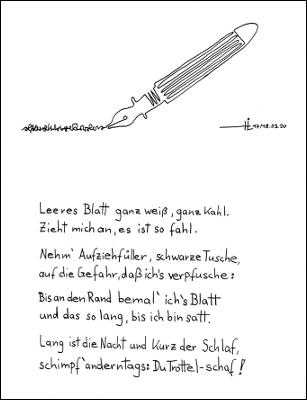 17/18.02.20
Leeres Blatt ganz weiß, ganz Kahl.
Zieht mich an, es ist so fahl.
Nehm' Aufziehfüller, schwarze Tusche,
auf die Gefahr, daß ich's verpfusche:
Bis an den Rand bemal' ich's Blatt
und das so lang, bis ich bin satt.
Lang ist die Nacht und Kurz der Schlaf,
schimpf' anderntags: Du Trottel-schaf!